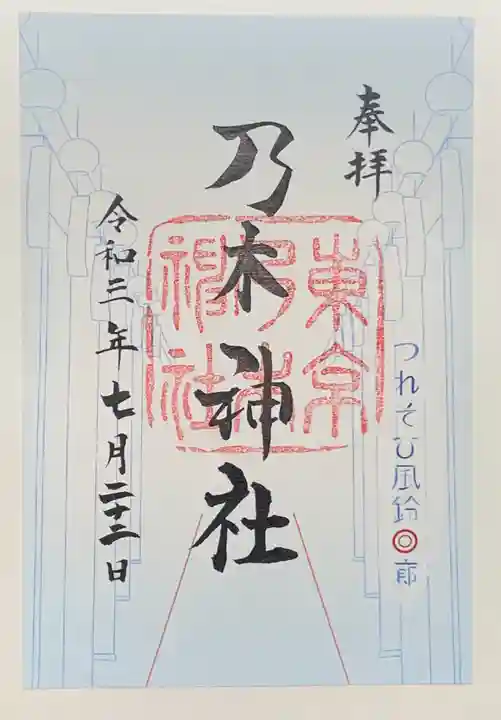 奉拝
つれそひ風鈴回廊
乃木神社
東京乃木神社
令和三年七月二十二日